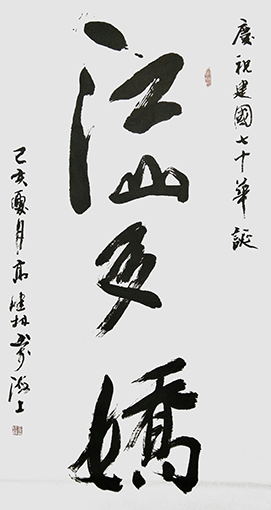 慶祝建國七十華誕
江山多嬌
己亥夏月高建林書於海上